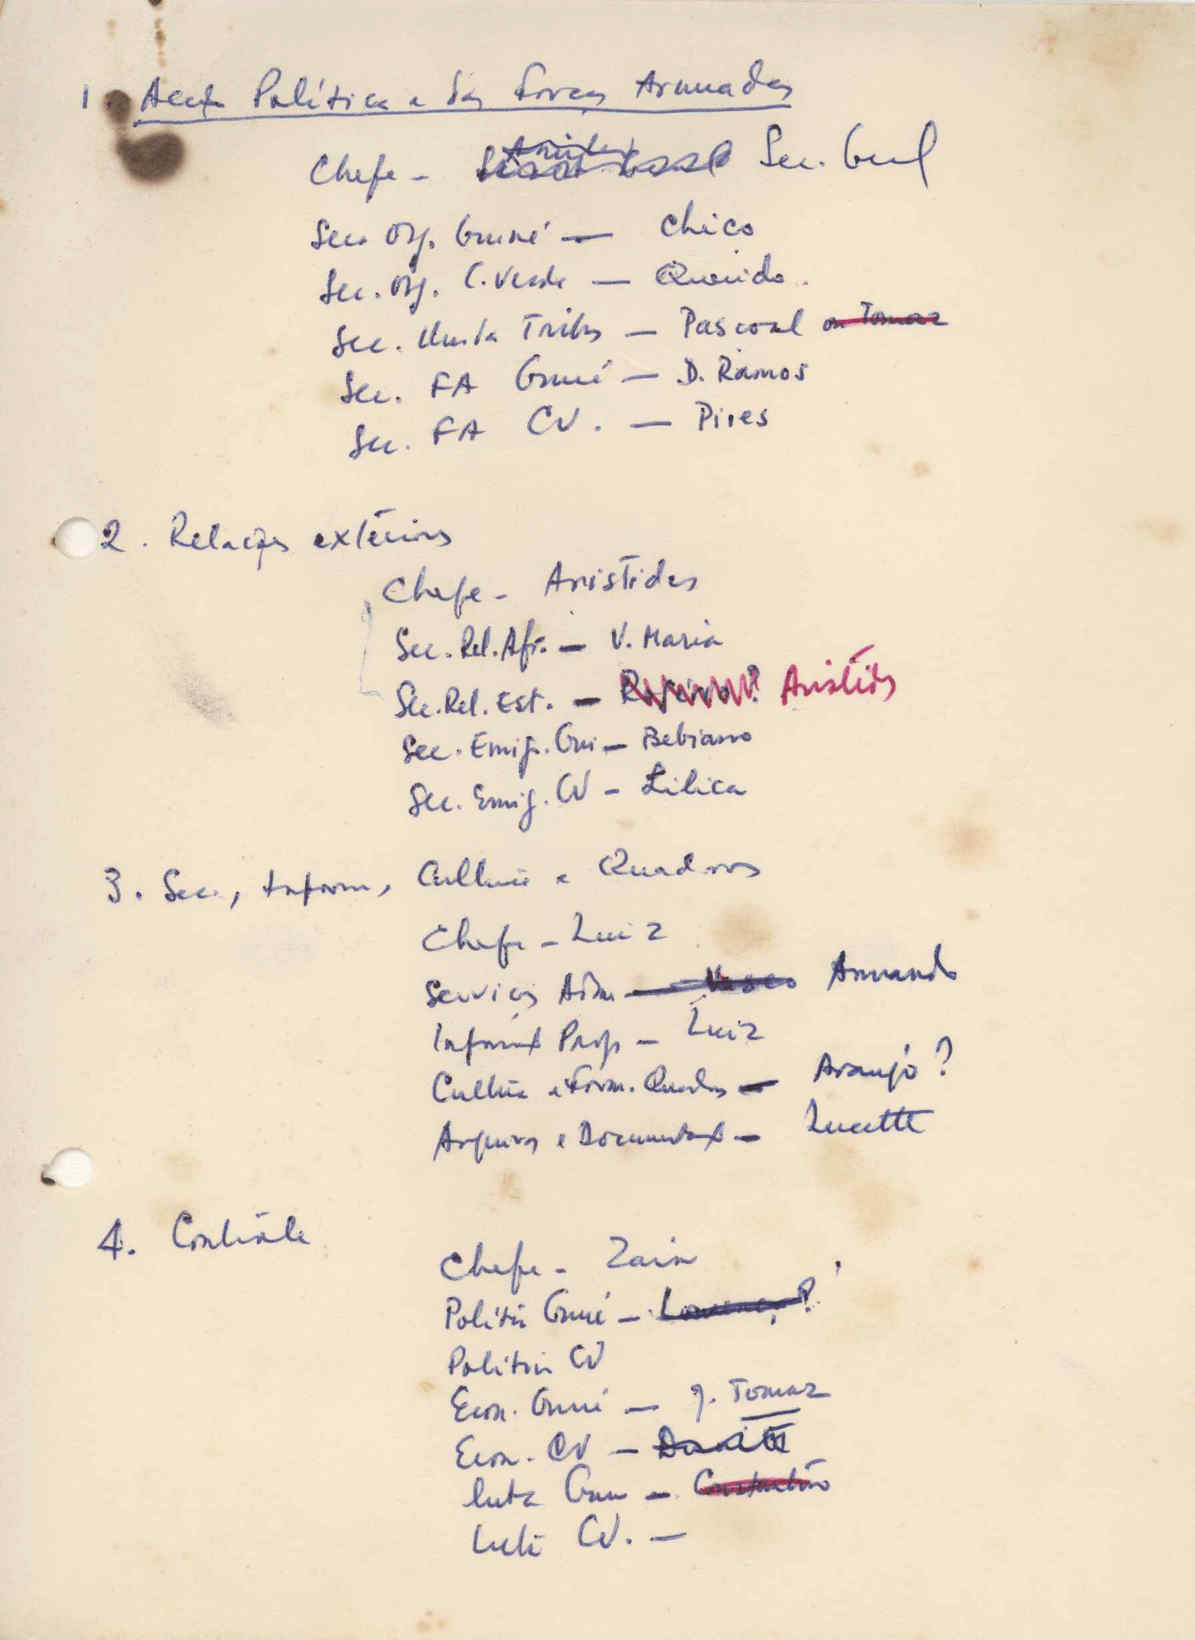 1. Acção Política e das Forças Armadas
Chefe - Sec. Geral
Sec. Org. Guiné — Chico
Sec. Org. C. Verde — Querido.
Sec. Tribos — Pascoal ou Tomaz
Sec. FA Guiné — D. Ramos
Sec. FA CV. — Pires
2. Relações extériores
Chefe - Aristides
Sec. Rel. Afr. — V. Maria
Sec. Rel. Est. — Aristides
Sec. Emig. Gui — Bebiano
Sec. Emig. CV - Lilica
3. Sec., Inform, Cultura e Quadros
Chefe - Luiz
Serviços Adm — Vasco Armando
Inform Prop - Luiz
Cultura e Form. Quadros — Araujo?
Arquivos e Document — Lucette
4. Contrôle
Chefe - Zain
Politica Guiné — ?
Politica CV
Econ. Guiné — J. Tomaz
Econ. CV —
luta Guin —
Luta CV. —